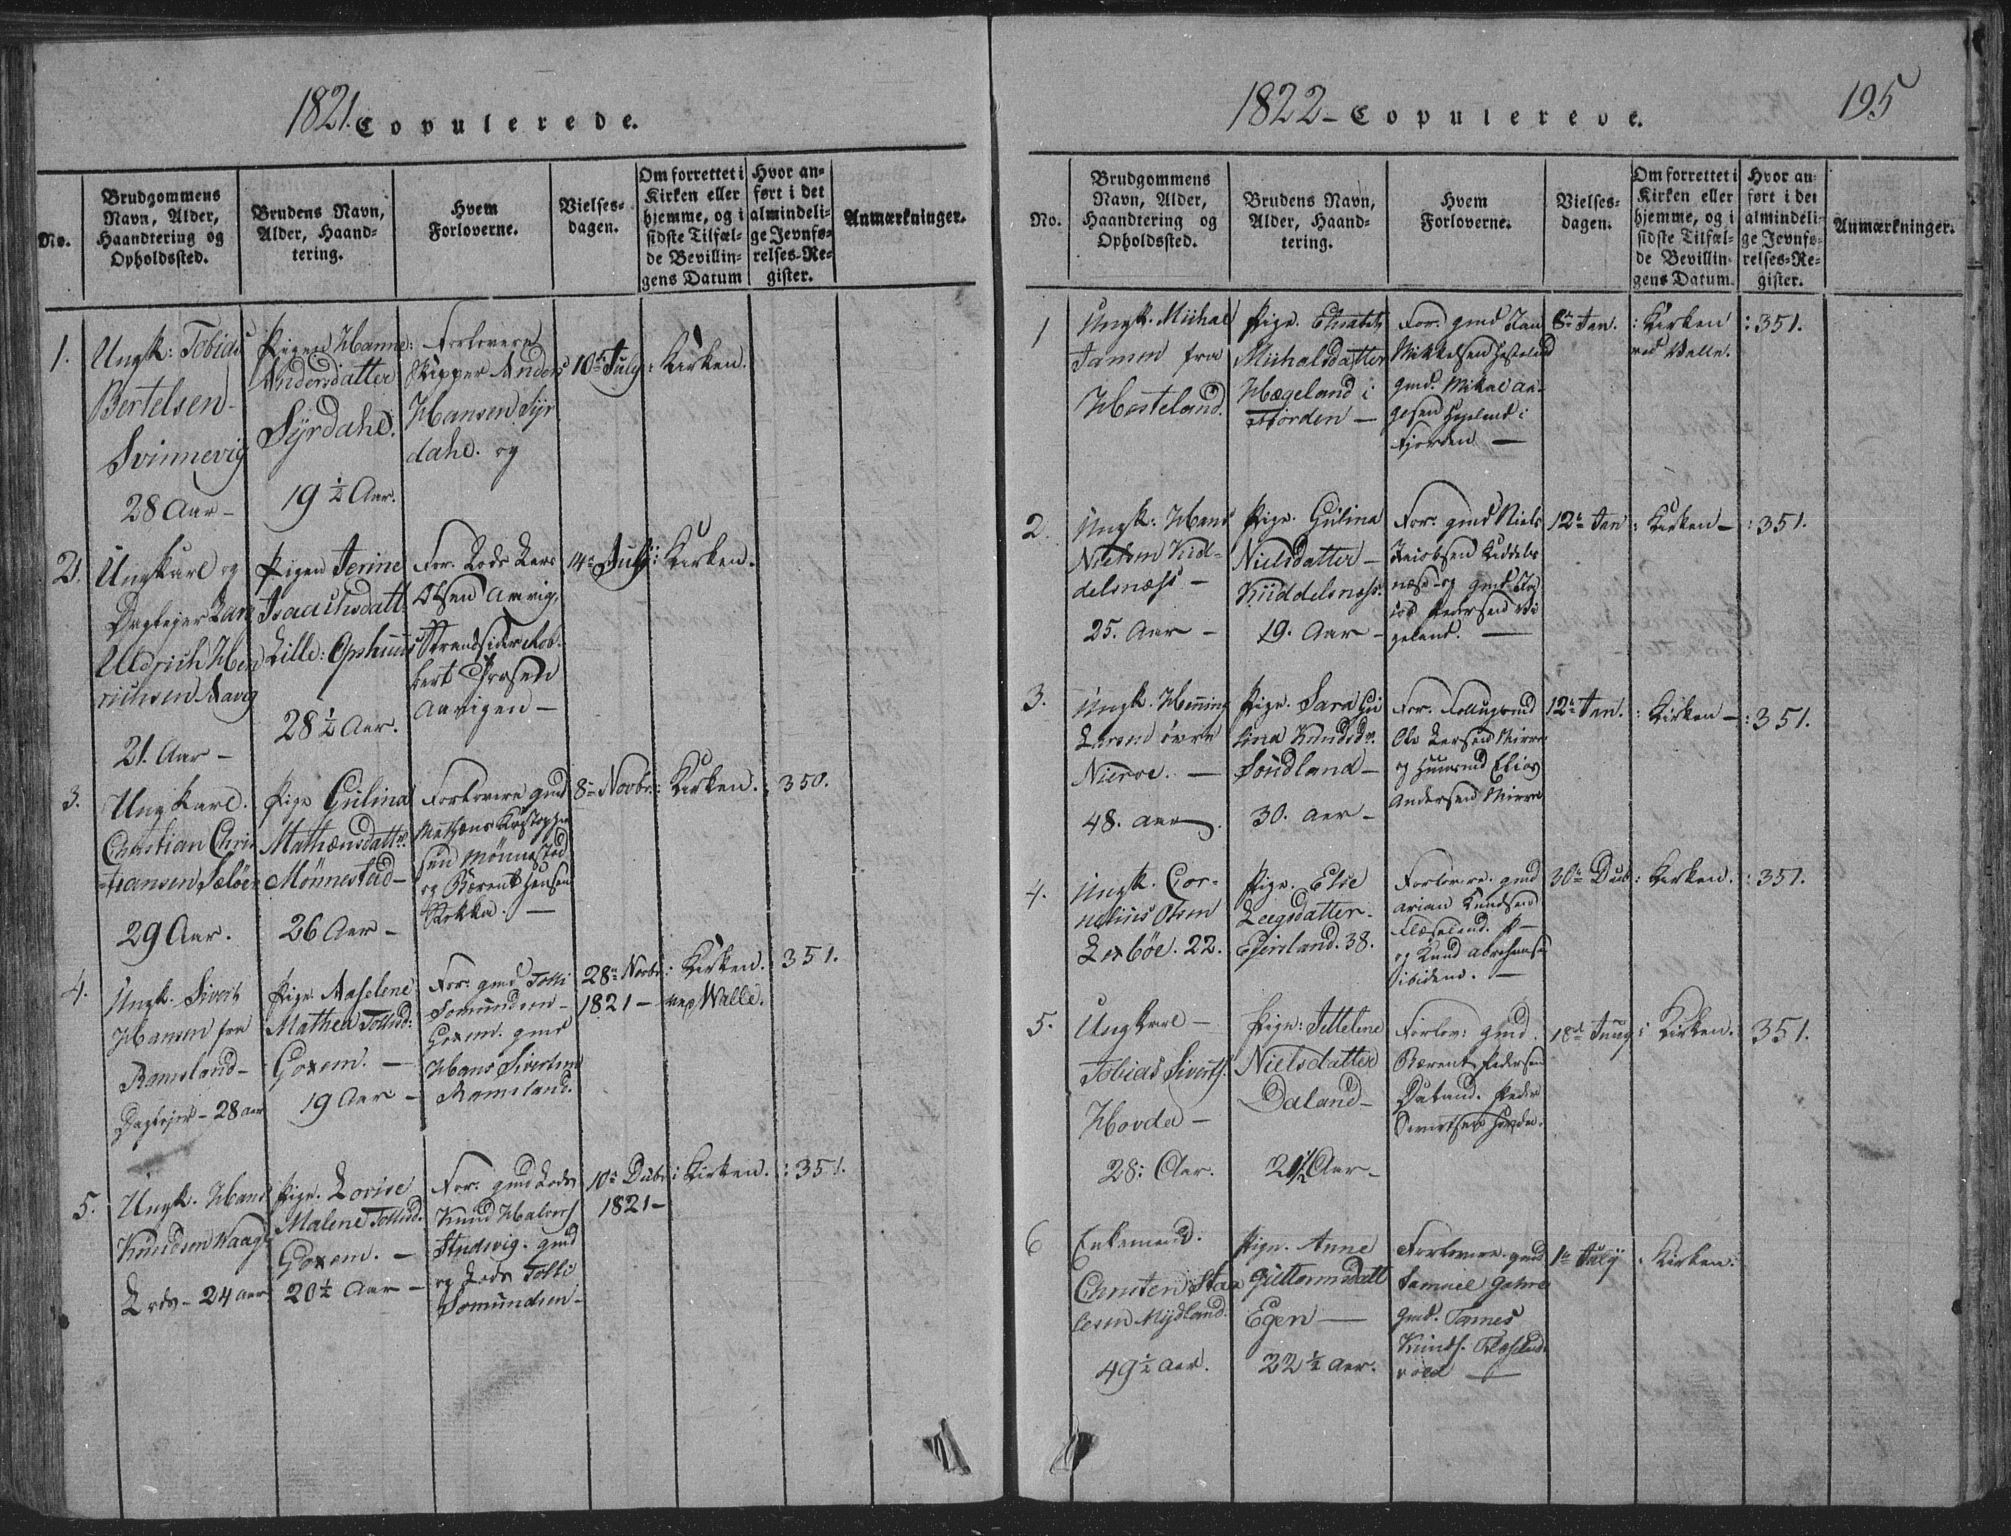 1821. Copulerede.
No.
Brudgommens
Navn, Alder,
Haandtering og
Opholdssted.
Brudens Navn,
Alder, Haand-
tering.
Hvem
Forloverne.
Vielses-
dagen.
Om forrettet i
Kirken eller
hjemme, og i
sidste Tilfæl-
de Bevillin-
gens Datum
Hvor an-
ført i det
almindeli-
ge Jevnfø-
relses-Re-
gister.
Anmærkninger.
1.
Ungk: Tobias
Bertelsen
Svinnevig
28 Aar –
Pigen Hanne
Andersdatter
Syrdahl.
19 ½ Aar.
Forlovere
Skipper Anders
Hansen Syr
dahl. og
10de July
: Kirken.
2.
Ungkarl og
Uldrich Hen
richsen Aavig
21. Aar –
Pigen Serine
Isaachsdatt.
Lille: Opshuus
28 ½ Aar.
For. Lods Lars
Olsen Aavig,
Strandsider Rob-
bert
Aavigen –
14de July
: Kirken.
3.
Ungkarl.
Christian Chris
tiansen Seløer
29 Aar.
Pige Gulina
Mathæusdattr
Mønnestad –
26 Aar –
Forlovere gmd
Mathæus Kristophe
sen Mønnestad
og Bærent Hansen
8de Novbr.
: Kirken.
: 350.
4.
Ungk. Sivert
Hansen fra
Ramsland –
– 28 aar
Pige Aaselene
Mathea Tollisd:
Goxem. –
19 Aar –
For. gmd Tolli
Somundsen –
Goxem. gmd
Hans Sivertsen
Ramsland.
28de Novbr
1821 –
: Kirken.
ved Walle.
351.
5.
Ungk. Hans
Knudsen Waage
Lods – 24 aar
Pige. Lovise
Malene Tollisd.
Goxem. –
20½ Aar –
For. gmd Lods
Knud Halvors
gmd
og Lods Tolli
Somundsen –
10de Decbr
1821 –
: Kirken.
: 351.
1822 – Copulerede.
195
No.
Brudgommens
Navn, Alder,
Haandtering og
Opholdssted.
Brudens Navn,
Alder, Haand-
tering.
Hvem
Forloverne.
Vielses-
dagen.
Om forrettet i
Kirken eller
hjemme, og i
sidste Tilfæl-
de Bevillin-
gens Datum.
Hvor an-
ført i det
almindeli-
ge Jevnfø-
relses-Re-
gister.
Anmærkninger.
1
Ungk. Michal
Jansen fra
Hosteland.
Pige. Elisabeth
Michalsdatter
Hægeland i
Fiorden –
For. gmd Jan
Mikkelsen Hosteland
gmd. Mikal Aa-
gesen Hegeland i
Fjorden –
8de Jan.
: Kirken
ved Valle.
: 351.
2.
Ungk: Hans
Nielsen Kud-
delsnæss –
25. Aar –
Pige. Gulina
Nielsdatter –
Kuddelsnæss.
19. Aar –
For. gmd Niels
Jacobsen Kuddels
næss og gmd
Pedersen Wi
geland. –
12te Jan
: Kirken –
: 351.
3.
Ungk. Henning
Larsen øvre
Nierve. –
48. aar.
Pige. Sara Gu
lina Knudsdr.
Soudland –
30. aar –
For.
Ole Larsen
og Huusmd Elias
Andersen
12te Jan.
: Kirken –
: 351.
4.
Ungk. Cor-
nelius Olsen
22.
Pige. Else
datter.
38.
Forlovere. gmd
Arian Knudsen
Flæseland.
og Knud Abrahams
30te
: Kirken.
: 351.
5.
Ungkarl –
Tobias Siverts.
Hovda –
28: Aar.
Pige: Jetteline
Nielsdatter
Daland –
21½ Aar –
Forlov: gmd.
Bærent Pedersen
Daland. Peder
Sivertsen Hovda.
18de Juny
: Kirken.
: 351.
6
Enkemand.
Christen Staa
lesen Mydland.
49½ aar.
Pige. Anne
Guttormsdatt
Egen –
22½ aar.
Forlovere. gmd
Samuel
gmd. Tønnes
Knuds.
1te July
: Kirken: